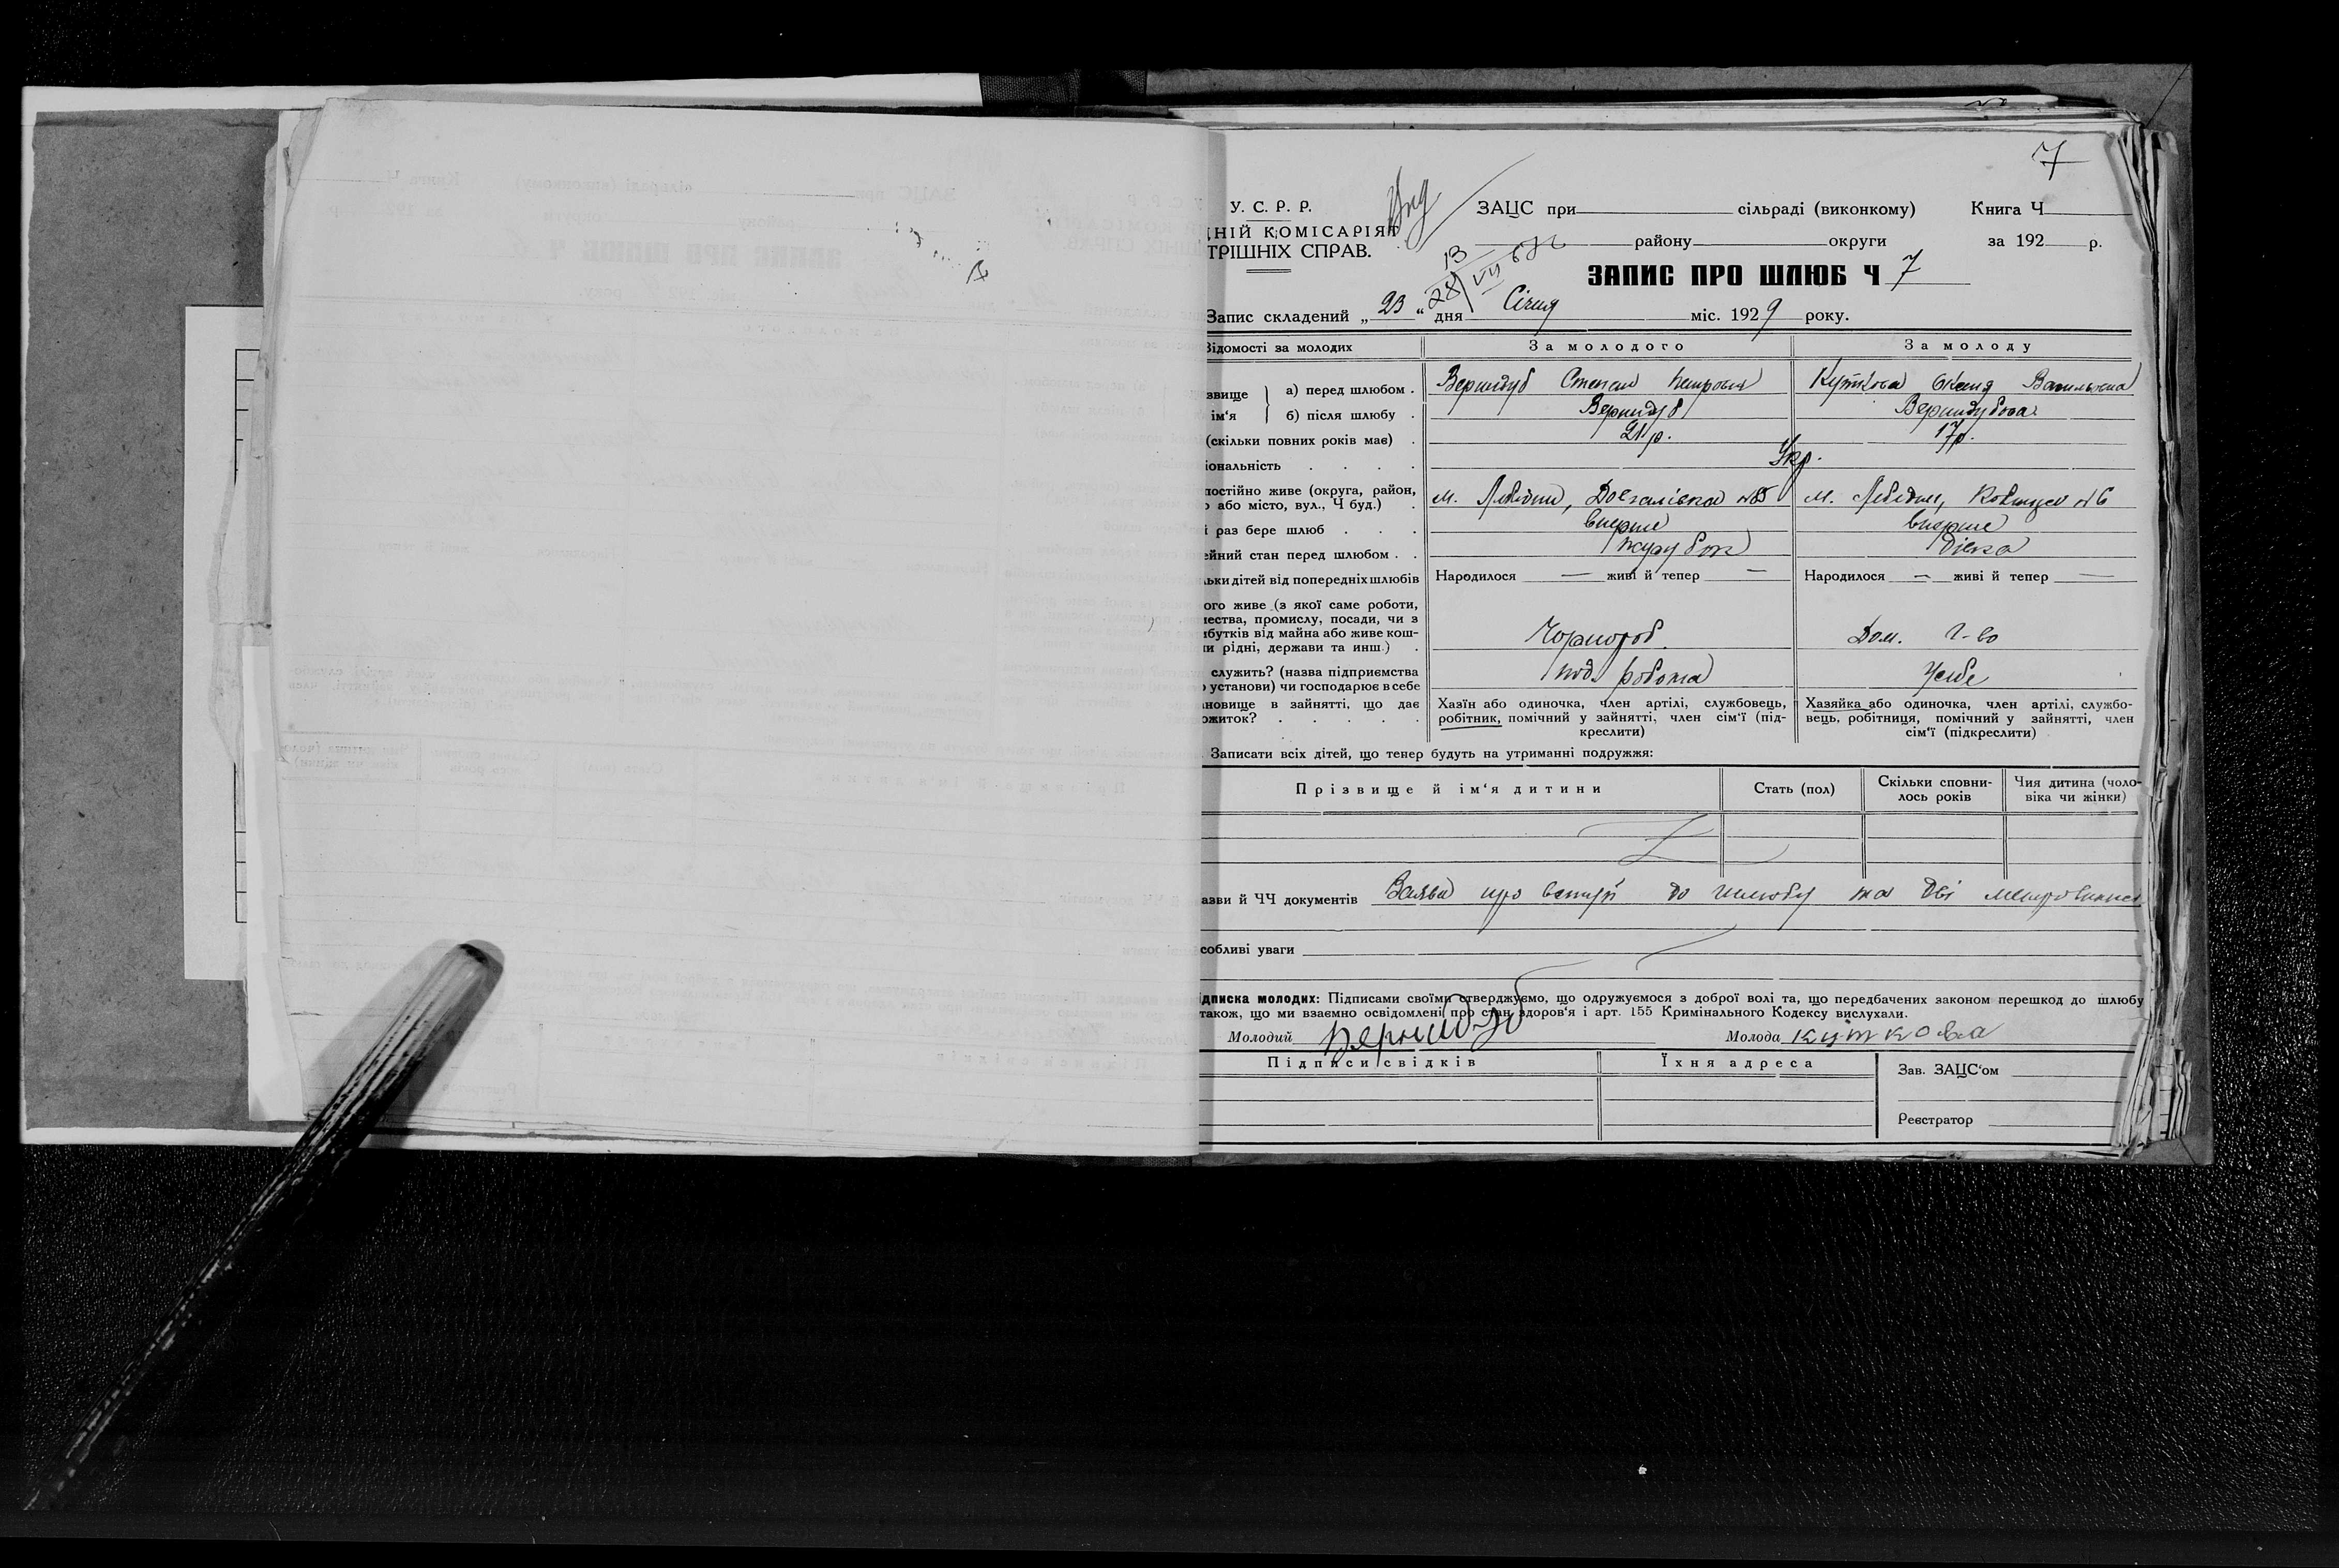 7
У. С. Р. Р.
ЗАЦС при сільраді (виконкому) Книга Ч
НІЙ КОМІСАРІЯТ
району округи за 192 р.
ТРІШНІХ СПРАВ.
13
28/VII
ЗАПИС ПРО ШЛЮБ Ч 7
Запис складений „23" дня Січня міс. 1929 року.
Відомості за молодих За молодого За молоду
звище а) перед шлюбом . Вернидуб Степан Петрович Куткова Євгенія Васильовна
ім'я б) після шлюбу . Вернидуб Вернидубова
(скільки повних років має) . 21 р. 17 р.
іональність . . . . Укр.
постійно живе (округа, район,
або місто, вул., Ч буд.) . м. Лебедин, Довгалівка №85 м. Лебедин, №6
і раз бере шлюб . . . вперше вперше
ейний стан перед шлюбом . . парубок дівка
льки дітей від попередніх шлюбів Народилося — живі й тепер — Народилося — живі й тепер —
ого живе (з якої саме роботи,
чества, промислу, посади, чи з
ибутків від майна або живе кош-
и рідні, держави та инш.) . Чорнороб. Дом. г-во
служить? (назва підприємства
установи) чи господарює в себе под. робота У себе
новище в зайнятті, що дає
ожиток? . . . . .
Хазїн або одиночка, член артілі, службовець,
робітник, помічний у зайнятті, член сім'ї (під-
креслити)
Хазяйка або одиночка, член артілі, службо-
вець, робітниця, помічний у зайнятті, член
сім'ї (підкреслити)
Записати всіх дітей, що тепер будуть на утриманні подружжя:
Прізвище й ім'я дитини Стать (пол) Скільки сповни-
лось років Чия дитина (чоло-
віка чи жінки)
азви й ЧЧ документів Заява про вступ до шлюбу та дві метровиписи
собливі уваги
дписка молодих: Підписами своїми стверджуємо, що одружуємося з доброї волі та, що передбачених законом перешкод до шлюбу
також, що ми взаємно освідомлені про стан здоров'я і арт. 155 Кримінального Кодексу вислухали.
Молодий Вернидуб Молода Куткова
Підписи свідків Їхня адреса Зав. ЗАЦС'ом
Реєстратор